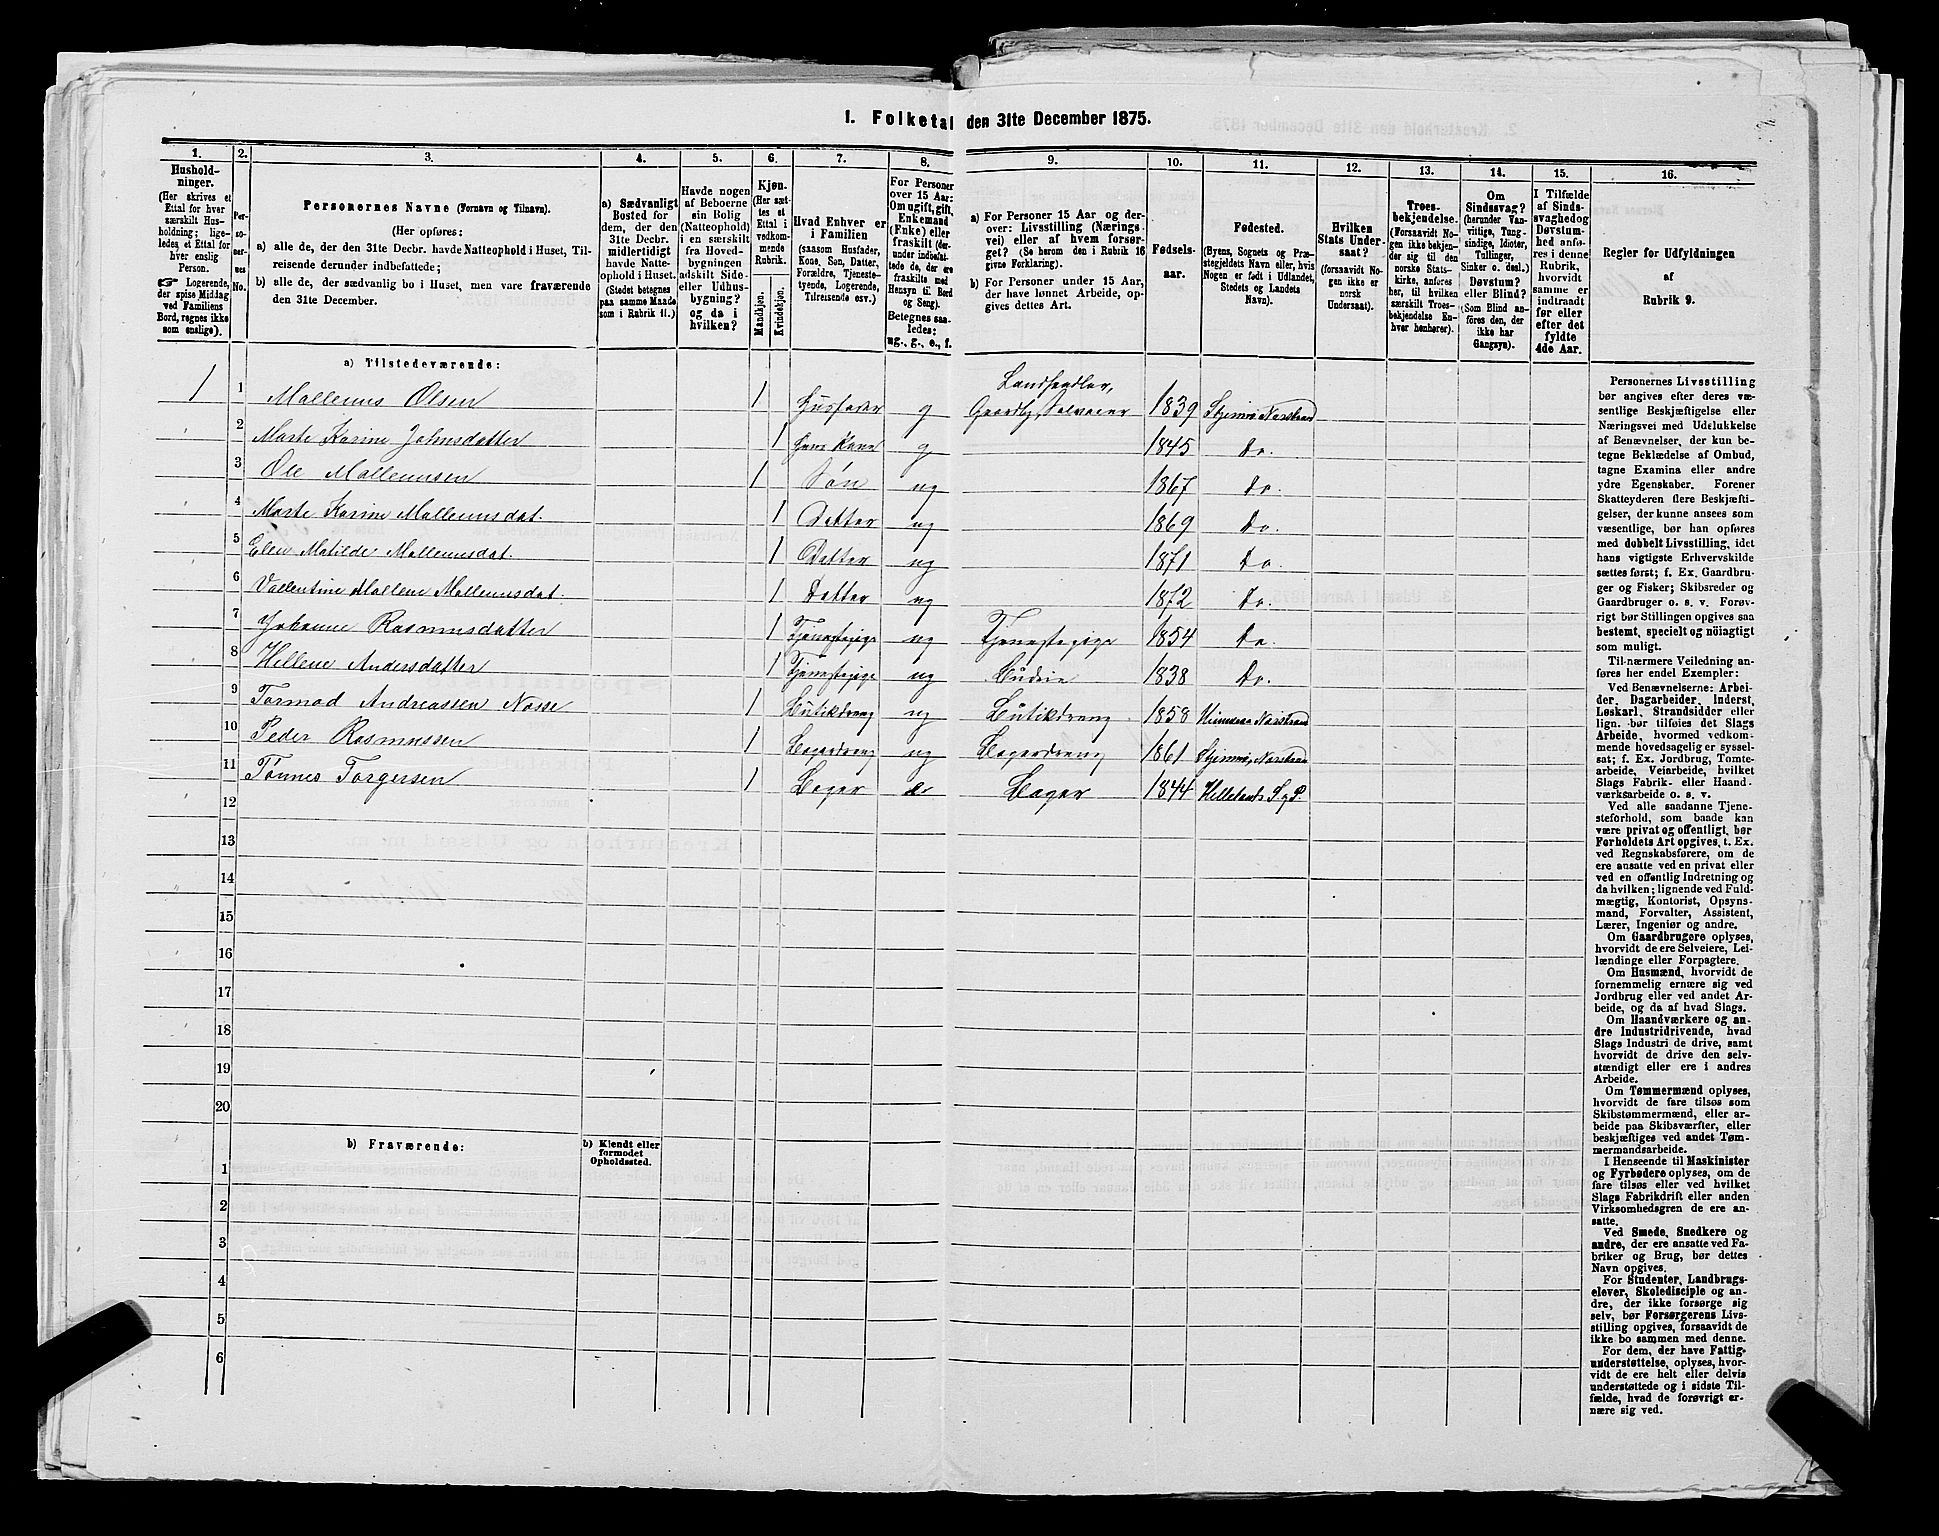 1. Folketal den 31te December 1875.
1.
2.
3.
4.
5.
6.
7.
8.
9.
10.
11.
12.
13.
14.
15.
16.
Hushold-
ninger.
(Her skrives et
Ettal for hver
særskilt Hus-
holdning; lige-
ledes et Ettal for
hver enslig
Person.
☞ Logerende,
der spise Middag
ved Familiens
Bord, regnes ikke
som enslige).
Per-
so-
ner-
nes
No.
Personernes Navne (Fornavn og Tilnavn).
(Her opføres:
a) alle de, der den 31te Decbr. havde Natteophold i Huset, Til-
reisende derunder indbefattede;
b) alle de, der sædvanlig bo i Huset, men vare fraværende
den 31te December.
a) Sædvanligt
Bosted for
dem, der den
31te Decbr.
midlertidigt
havde Natte-
ophold i Huset.
(Stedet betegnes
paa samme Maade
som i Rubrik 11.)
Havde nogen
af Beboerne
sin Bolig
(Natteophold)
i en særskilt
fra Hoved-
bygningen
adskilt Side-
eller Udhus-
bygning?
og da i
hvilken?
Kjøn.
(Her sæt-
tes et
Ettal i
vedkom-
mende
Rubrik.
Mandkjøn.
Kvindekjøn.
Hvad Enhver er
i Familien
(saasom Husfader,
Kone, Søn, Datter,
Forældre, Tjeneste-
tyende, Logerende,
Tilreisende osv.)
For Personer
over 15 Aar:
Om ugift, gift,
Enkemand
(Enke) eller
fraskilt (der-
under indbefat-
tede de, der ere
fraskilte med
Hensyn til Bord
og Seng).
Betegnes saa-
ledes:
ug., g., e., f.
a) For Personer 15 Aar og der-
over: Livsstilling (Nærings-
vei) eller af hvem forsør-
get? (Se herom den i Rubrik 16
givne Forklaring).
b) For Personer under 15 Aar,
der have lønnet Arbeide, op-
gives dettes Art.
Fødsels-
aar.
Fødested.
(Byens, Sognets og Præ-
stegjeldets Navn eller, hvis
Nogen er født i Udlandet,
Stedets og Landets
Navn).
Hvilken
Stats Under-
saat?
(forsaavidt No-
gen ikke er
norsk
Undersaat).
Troes-
bekjendelse.
(Forsaavidt No-
gen ikke bekjen-
der sig til den
norske Stats-
kirke, anføres
her, til hvilken
særskilt Troes-
bekjendelse En-
hver henhører).
Om
Sindssvag?
(herunder Van-
vittige, Tung-
sindige, Idioter,
Tullinger,
Sinker o. desl.)
Døvstum?
eller Blind?
(Som Blind an-
føres den, der
ikke har
Gangsyn).
I Tilfælde
af Sinds-
svaghed og
Døvstum-
hed anfø-
res i denne
Rubrik,
hvorvidt
samme er
indtraadt
før eller
efter det
fyldte
4de Aar.
Regler for Udfyldningen
af
Rubrik 9.
a) Tilstedeværende:
1 1 Mallenus Olsen 1 Husfader g Landhandler, Gaardbr. Selveier 1839 Stjernerø Nærstrand
2 Marte Karine Johnsdatter 1 Hans Kone g 1845 Do.
3 Ole Mallenusen 1 Søn ug 1867 Do.
4 Marte Karine Mallenusdat. 1 Datter ug 1869 Do.
5 Elen Matilde Mallenusdat. 1 Datter ug 1871 Do.
6 Vallentine Mallene Mallenusdat. 1 Datter ug 1872 Do.
7 Johanne Rasmusdatter 1 Tjenestepige ug Tjenestepige 1854 Do.
8 Hellene Andersdatter 1 Tjenestepige ug Budeie 1838 Do.
9 Tormod Andreassen Næsse 1 Butikdreng ug Butikdreng 1858 Nærstrand
10 Peder Rasmussen 1 Bagerdreng ug Bagerdreng 1861 Stjernerø, Nærstrand
11 Tönnes Torgersen 1 Bager Bager 1844 Hellelands S. g P.
12
13
14
15
16
17
18
19
20
b) Fraværende:
b) Kjendt eller
formodet
Opholdssted.
1
2
3
4
5
6
Personernes Livsstilling
bør angives efter deres væ-
sentlige Beskjæftigelse eller
Næringsvei med Udelukkelse
af Benævnelser, der kun be-
tegne Beklædelse af Ombud,
tagne Examina eller andre
ydre Egenskaber. Forener
Skatteyderen flere Beskjæfti-
gelser, der kunne ansees som
væsentlige, bør han opføres
med dobbelt Livsstilling, idet
hans vigtigste Erhvervskilde
sættes først; f. Ex. Gaardbru-
ger og Fisker; Skibsreder og
Gaardbruger o. s. v. Forøv-
rigt bør Stillingen opgives saa
bestemt, specielt og nöiagtigt
som muligt.
Til nærmere Veiledning an-
føres her endel Exempler:
Ved Benævnelserne: Arbei-
der, Dagarbeider, Inderst,
Løskarl, Strandsidder eller
lign. bør tilføies det Slags
Arbeide, hvormed vedkom-
mende hovedsagelig er syssel-
sat; f. Ex. Jordbrug, Tomte-
arbeide, Veiarbeide, hvilket
Slags Fabrik- eller Haand-
værksarbeide o. s. v.
Ved alle saadanne Tjene-
steforhold, som baade kan
være privat og offentligt, bør
Forholdets Art opgives, t. Ex.
ved Regnskabsførere, om de
ere ansatte ved en privat eller
ved en offentlig Indretning og
da hvilken; lignende ved Fuld-
mægtig, Kontorist, Opsyns-
mand, Forvalter, Assistent,
Lærer, Ingeniør og andre.
Om Gaardbrugere oplyses,
hvorvidt de ere Selveiere, Lei-
lændinge eller Forpagtere.
Om Husmænd, hvorvidt de
fornemmelig ernære sig ved
Jordbrug eller ved andet Ar-
beide, og da af hvad Slags.
Om Haandværkere og an-
dre Industridrivende, hvad
Slags Industri de drive, samt
hvorvidt de drive den selv-
stændigt eller ere i andres
Arbeide.
Om Tømmermænd oplyses,
hvorvidt de fare tilsøs som
Skibstømmermænd, eller ar-
beide paa Skibsværfter, eller
beskjæftiges ved andet Tøm-
mermandsarbeide.
I Henseende til Maskinister
og Fyrbødere oplyses, om de
fare tilsøs eller ved hvilket
Slags Fabrikdrift eller anden
Virksomhedsgren de ere an-
satte.
Ved Smede, Snedkere og
andre, der ere ansatte ved Fa-
briker og Brug, bør dettes
Navn opgives.
For Studenter, Landbrugs-
elever, Skoledisciple og an-
dre, der ikke forsørge sig
selv, bør Forsørgerens Livs-
stilling opgives, forsaavidt de
ikke bo sammen med denne.
For dem, der have Fattig-
understøttelse, oplyses, hvor-
vidt de ere helt eller delvis
understøttede og i sidste Til-
fælde, hvad de forøvrigt er-
nære sig ved.